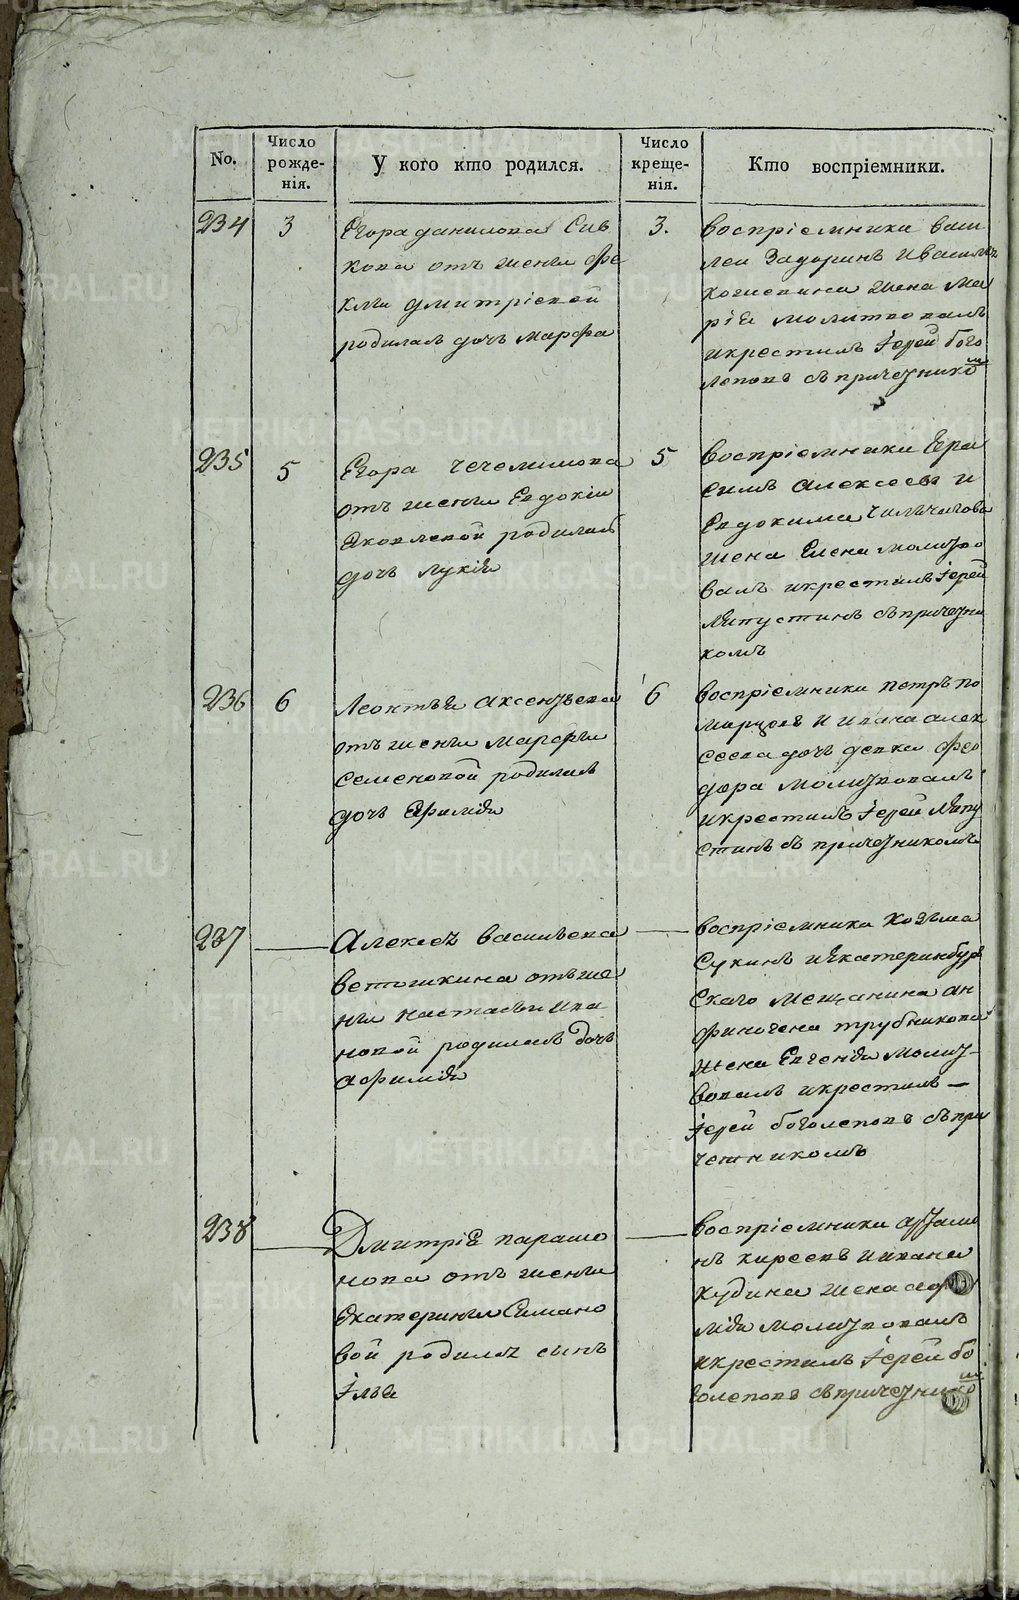 No.
Число рожде-нія.
У кого кто родился.
Число креще-нія.
Кто воспріемники.
234
3
Егора данилова Сив
кова отъ жены Фе
клы дмитріевой
родилась дочь марфа
3.
воспріемники васи
леи Задоринъ и василья
жена Ма
рія молитвовалъ
и крестилъ Іерей бого
леповъ съ причетникомъ
235
5
Егора
отъ жены Евдокіи
Яковлевой родилась
дочь лукія
5
воспріемники Гера
симъ алексеевъ и
Евдокима
жена Елена молитво
валъ и крестилъ Іерей
Ляпустинъ съ причетни
комъ
236
6
Леонтья аксентьева
отъ жены марфы
семеновой родилась
дочь Ефимія
6
воспріемники петръ по
и ивана алек
сеева дочь девка фео
дора молитвовалъ
и крестилъ Іерей Ляпу
стинъ съ причетникомъ
237
Алексея васильева
ветошкина отъ же
ны настасьи ива
новой родилась дочь
афимія
воспріемники козьма
Сукинъ и Екатеринбург
скаго мещанина ан
финогена трубникова
жена Евгенія молит-
вовалъ и крестилъ
Іерей боголеповъ съ при
четникомъ
238
Дмитрія парамо
нова отъ жены
Екатерины Симано
вой родился сынъ
Илья
воспріемники артамо
нъ киреевъ и ивана
кудина жена аф
мія молитвовалъ
и крестилъ Іерей бо
голеповъ съ причетникомъ
METRIKI.GASO-URAL.RU